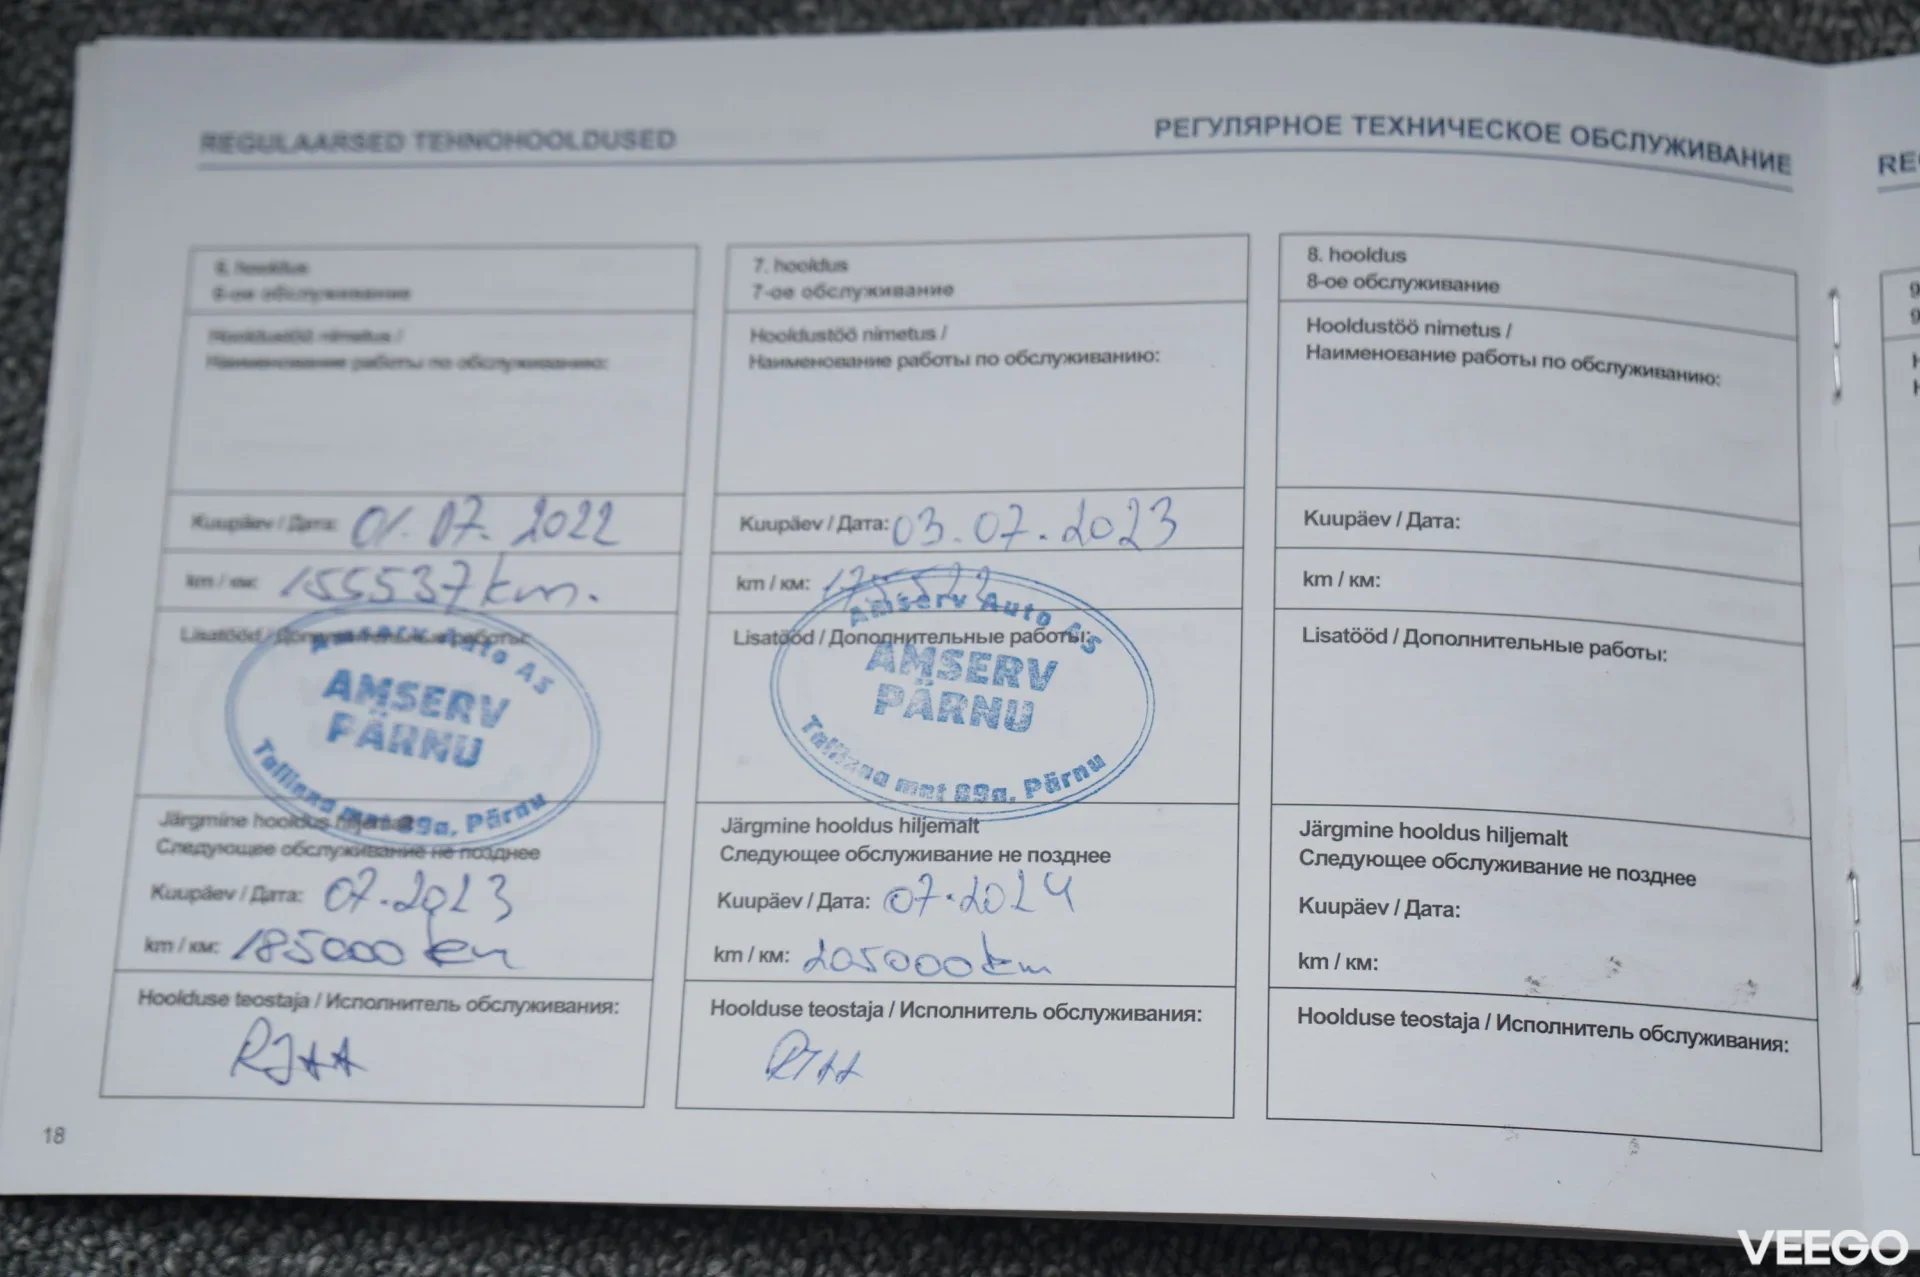 REGULAARSED TEHNOHOOLDUSED
РЕГУЛЯРНОЕ ТЕХНИЧЕСКОЕ ОБСЛУЖИВАНИЕ
6. hooldus
6-ое обслуживание
Hooldustöö nimetus /
Наименование работы по обслуживанию:
Kuupäev / Дата: 01.07.2022
km / км: 155537 km.
Lisatööd / Дополнительные работы:
Amserv Auto AS
AMSERV
PÄRNU
Tallinna mnt 89a, Pärnu
Järgmine hooldus hiljemalt
Следующее обслуживание не позднее
Kuupäev / Дата: 07.2023
km / км: 185000 km
Hoolduse teostaja / Исполнитель обслуживания:
7. hooldus
7-ое обслуживание
Hooldustöö nimetus /
Наименование работы по обслуживанию:
Kuupäev / Дата: 03.07.2023
km / км:
Lisatööd / Дополнительные работы:
Amserv Auto AS
AMSERV
PÄRNU
Tallinna mnt 89a, Pärnu
Järgmine hooldus hiljemalt
Следующее обслуживание не позднее
Kuupäev / Дата: 07.2024
km / км: 205000 km
Hoolduse teostaja / Исполнитель обслуживания:
8. hooldus
8-ое обслуживание
Hooldustöö nimetus /
Наименование работы по обслуживанию:
Kuupäev / Дата:
km / км:
Lisatööd / Дополнительные работы:
Järgmine hooldus hiljemalt
Следующее обслуживание не позднее
Kuupäev / Дата:
km / км:
Hoolduse teostaja / Исполнитель обслуживания:
18
VEEGO